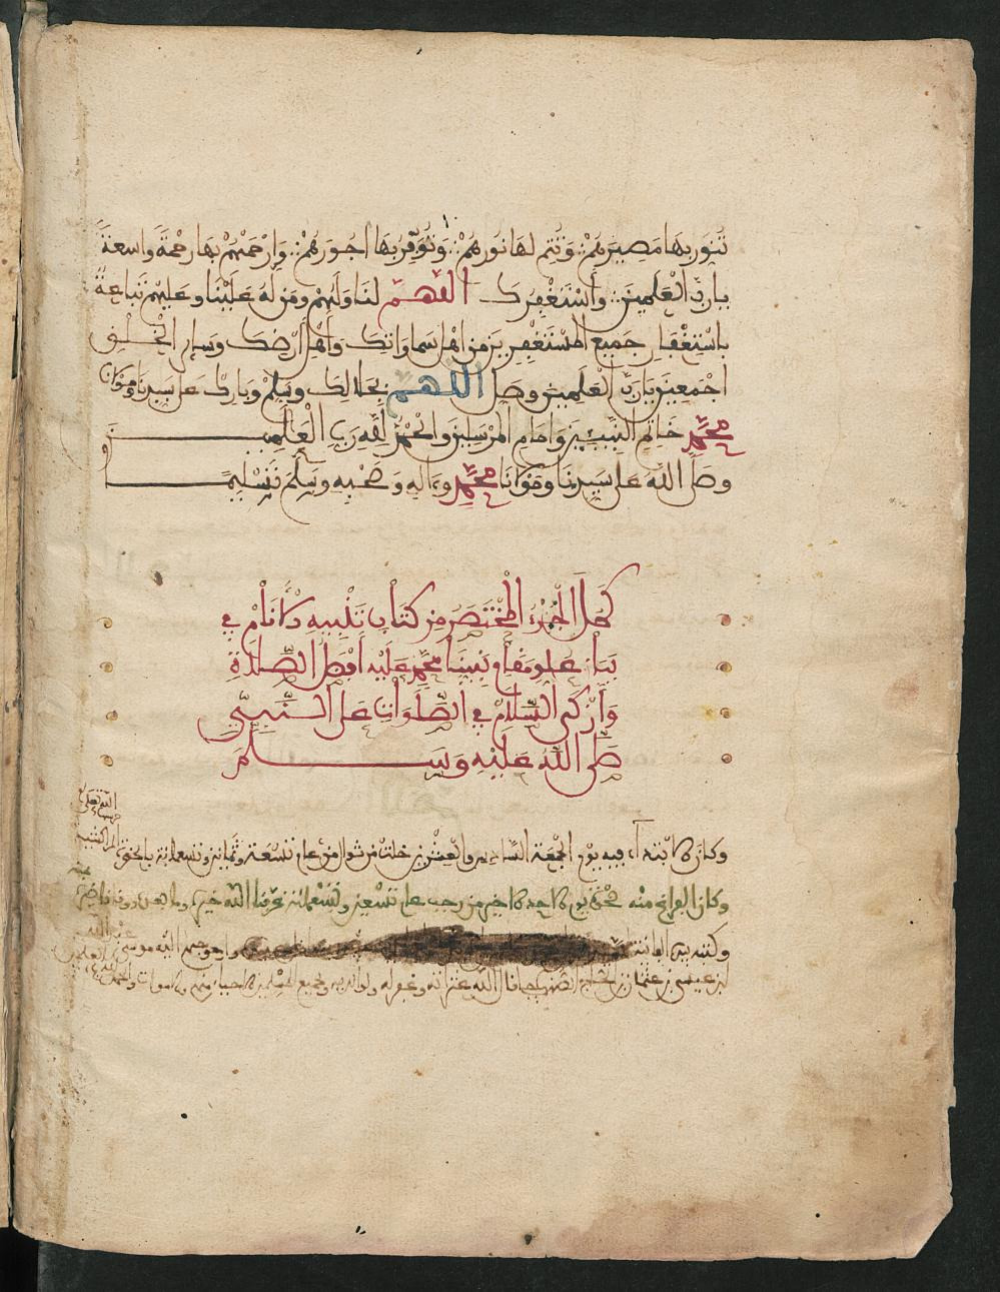 تُنَوِّر بِهَا مَصِيرَهُمْ وَتُتِم لهَا نُورَهُمْ وَتُوَفِّر بِهَا اجُورَهُمْ وَارْحَمْهُمْ بِهَا رحْمَةً واسعةً
يا ربّ الْعَلَمِينَ وأَسْتَغْفِرُكَ اللهم لنا ولهُمْ ومن لهُ علَيْنا وعليهم تباعةٌ
باسْتِغْفارِ جميع المسْتَغْفِرِينَ من اهل سماواتك وأهْل أرْضك وسائر الخلق
اجْمعين يا ربّ العلمين وصل اللهم بجلالك وسلمْ وبارك على سيدنا ومولانا
محمد خاتم النبيين وامام المرسلين والحمْد لله رب العالمين
وصلى الله على سيدنا ومولانا محمد وءاله وصحْبه وسلم تسليمًا
كمل الجُزْء المخْتَصَر من كتاب تنْبيه الأنامْ في
بيان علو مقام نبينا محمد عليه أفضل الصلاة
وأزكى السّلامْ في الصّلوات على النبيّ
صلى الله عليه وسلم
وكان الابتداء فيه يوم الجمعة السادس والعشرين خلت من شوال من عام تسْعة وثمانين وتسعمائة
وكان الفراغ منه ضحْوة يوم الاحد الاخير من رجب عام تسْعين وتسْعمائة عرّفنا الله خيره وما بعده
وكتبه بيده الفانية موسى
ابن عيسى بن عثمان بن الله وغفر له ولوالديه ولجميع المسْلمين الاحياء منهم والاموات